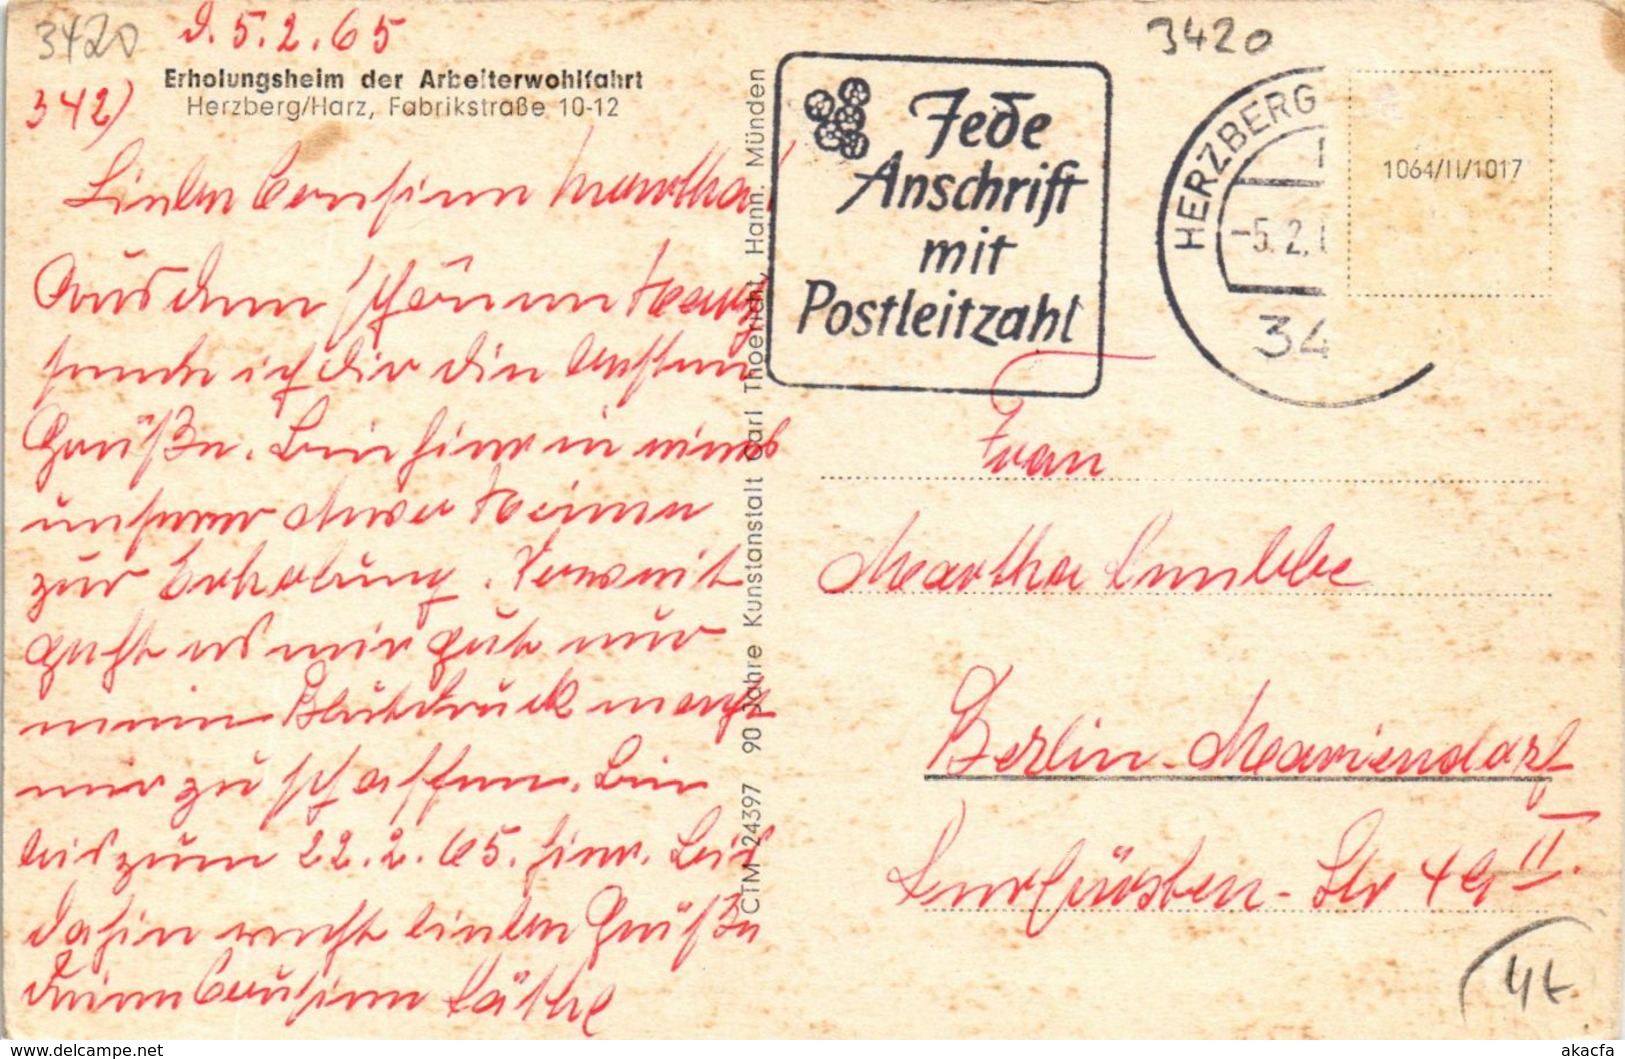 3420
d. 5.2.65
3420
342)
Erholungsheim der Arbeiterwohlfahrt
Herzberg/Harz, Fabrikstraße 10-12
Liebe Cousine Martha!
Aus dem schönen Harz
sende ich Dir die besten
Grüße. Bin hier in eines
unserer Heime
zur Erholung. Soweit
geht es mir gut nur
mein Blutdruck macht
mir zu schaffen. Bin
bis zum 22.2.65. hier. Bis
dahin recht lieben Grüße
Deine Cousine Käthe
CTM 24397 90 Jahre Kunstanstalt Carl Thoericht, Hann. Münden
Jede
Anschrift
mit
Postleitzahl
HERZBERG
-5.2.
34
1064/II/1017
Frau
Martha
Berlin-Mariendorf
Kurfürsten-Str 49 II.
4t
akacfa